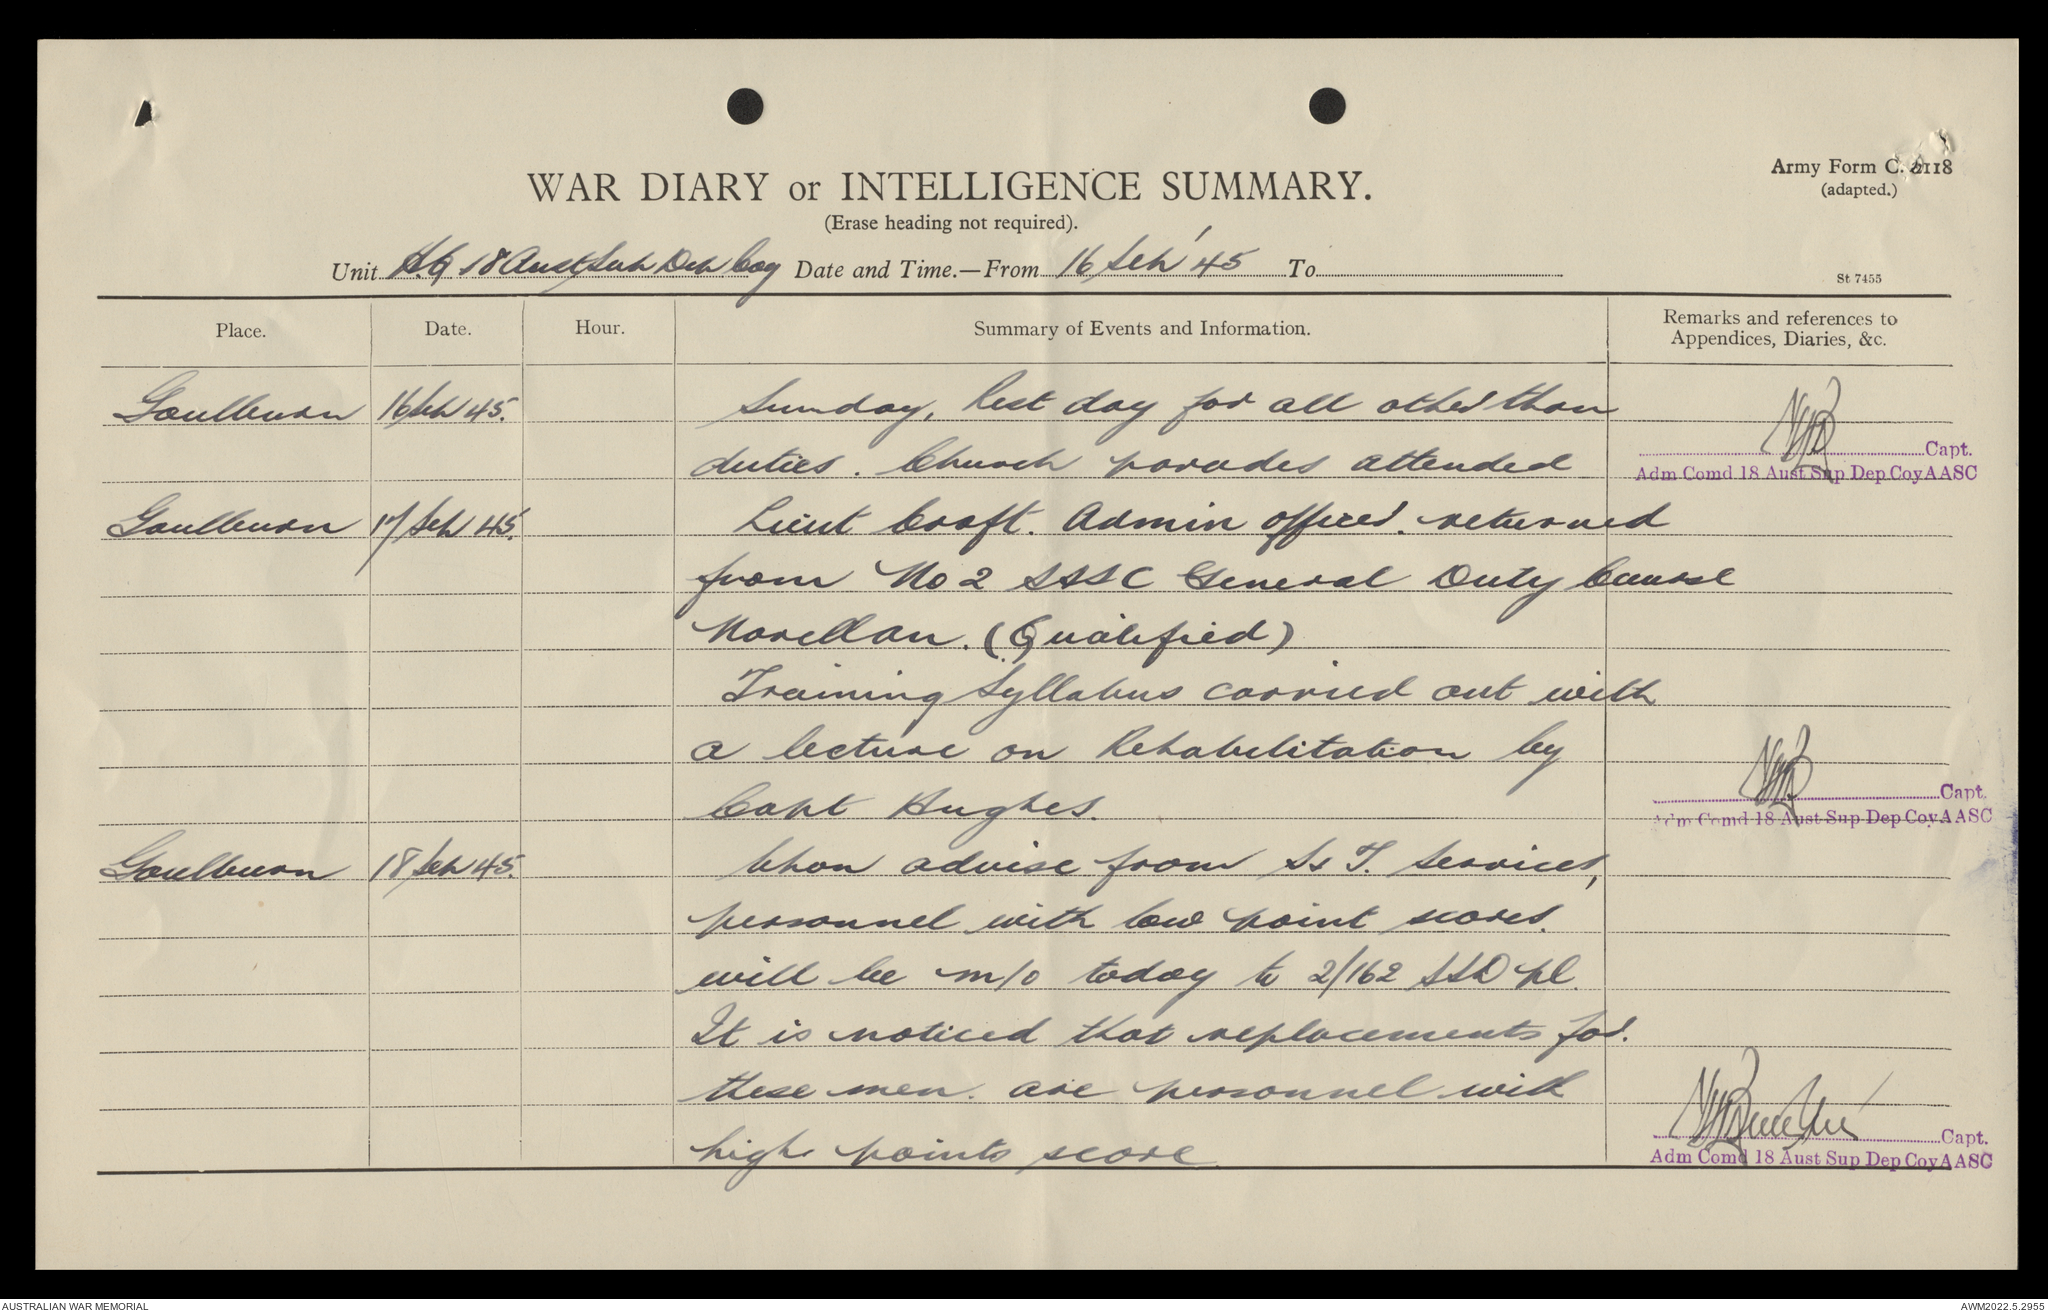 Army Form C. 2118
(adapted.)
WAR DIARY or INTELLIGENCE SUMMARY.
(Erase heading not required).
Unit HQ 18 Aust Sup Dep Coy Date and Time.—From 16 Sep '45 To
St 7455
Place. Date. Hour. Summary of Events and Information. Remarks and references to Appendices, Diaries, &c.
Goulburn 16 Sep 45. Sunday, Rest day for all other than
duties. Church parades attended
Capt.
Adm Comd 18 Aust Sup Dep Coy AASC
Goulburn 17 Sep 45. Lieut Croft. Admin officer. returned
from No 2 General Duty Course
Narellan. (Qualified)
Training Syllabus carried out with
a lecture on Rehabilitation by
Capt Hughes.
Capt.
Adm Comd 18 Aust Sup Dep Coy AASC
Goulburn 18 Sep 45. Upon advise from S & T. Services,
personnel with low point scores.
will be m/o today to 2/162 SSD pl.
It is noticed that replacements for.
these men. are personnel with
high points score
Capt.
Adm Comd 18 Aust Sup Dep Coy AASC
AUSTRALIAN WAR MEMORIAL
AWM2022.5.2955